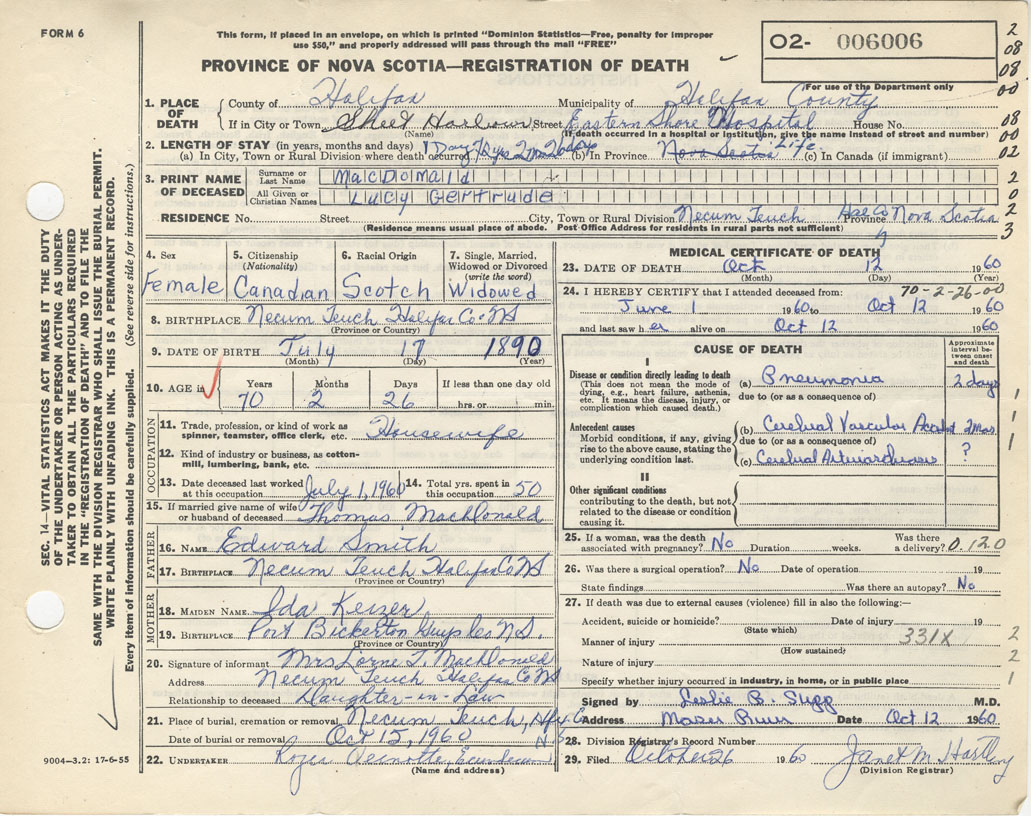 FORM 6
This form, if placed in an envelope, on which is printed "Dominion Statistics—Free, penalty for improper
use $50," and properly addressed will pass through the mail "FREE"
02- 006006
PROVINCE OF NOVA SCOTIA—REGISTRATION OF DEATH
For use of the Department only
2
08
08
00
08
00
02
2
0
2
3
1. PLACE OF DEATH { County of Halifax Municipality of Halifax County
If in City or Town Sheet Harbour Street Eastern Shore Hospital House No.
(Name) (If death occurred in a hospital or institution, give the name instead of street and number)
2. LENGTH OF STAY (in years, months and days) 1 Day 70yrs 2 mos 26 days Life
(a) In City, Town or Rural Division where death occurred (b) In Province Nova Scotia (c) In Canada (if immigrant)
3. PRINT NAME OF DECEASED { Surname or Last Name MacDonald
All Given or Christian Names Lucy Gertrude
RESIDENCE No. Street City, Town or Rural Division Necum Teuch Hal Co Province Nova Scotia
(Residence means usual place of abode. Post Office Address for residents in rural parts not sufficient)
4. Sex Female
5. Citizenship (Nationality) Canadian
6. Racial Origin Scotch
7. Single, Married, Widowed or Divorced (write the word) Widowed
8. BIRTHPLACE Necum Teuch Halifax Co NS
(Province or Country)
9. DATE OF BIRTH July 17 1890
(Month) (Day) (Year)
10. AGE in { Years Months Days If less than one day old
70 2 26 hrs. or min.
OCCUPATION
11. Trade, profession, or kind of work as spinner, teamster, office clerk, etc. Housewife
12. Kind of industry or business, as cotton-mill, lumbering, bank, etc.
13. Date deceased last worked at this occupation July 1, 1960 14. Total yrs. spent in this occupation 50
15. If married give name of wife or husband of deceased Thomas MacDonald
FATHER
16. NAME Edward Smith
17. BIRTHPLACE Necum Teuch Halifax Co NS
(Province or Country)
MOTHER
18. MAIDEN NAME Ida Keizer
19. BIRTHPLACE Port Bickerton Guys Co NS.
(Province or Country)
20. Signature of informant Mrs Lorne T. MacDonald
Address Necum Teuch Halifax Co NS
Relationship to deceased Daughter-in-Law
21. Place of burial, cremation or removal Necum Teuch, Hfx Co
Date of burial or removal Oct 15, 1960 N.S
22. UNDERTAKER Roger
(Name and address)
MEDICAL CERTIFICATE OF DEATH
23. DATE OF DEATH Oct 12 1960
(Month) (Day) (Year)
24. I HEREBY CERTIFY that I attended deceased from: 70-2-26-00
June 1 1960 to Oct 12 1960
and last saw her alive on Oct 12 1960
CAUSE OF DEATH
Approximate interval between onset and death
I
Disease or condition directly leading to death (a) Pneumonia 2 days
(This does not mean the mode of dying, e.g., heart failure, asthenia, etc. It means the disease, injury, or complication which caused death.)
due to (or as a consequence of)
Antecedent causes (b) Cerebral Vascular Accident 2 mos.
Morbid conditions, if any, giving rise to the above cause, stating the underlying condition last.
due to (or as a consequence of)
(c) Cerebral ?
II
Other significant conditions
contributing to the death, but not related to the disease or condition causing it.
1
1
1
25. If a woman, was the death associated with pregnancy? No Duration weeks. Was there a delivery? 0.120
26. Was there a surgical operation? No Date of operation 19
State findings Was there an autopsy? No
27. If death was due to external causes (violence) fill in also the following:—
Accident, suicide or homicide? Date of injury 19
(State which)
Manner of injury 331X 2
(How sustained)
Nature of injury 2
Specify whether injury occurred in industry, in home, or in public place 1
Signed by Leslie B. Sugg M.D.
Address Moser River Date Oct 12 1960
28. Division Registrar's Record Number
29. Filed October 26 1960 Janet M Hartling
(Division Registrar)
9004—3.2: 17-6-55
SEC. 14—VITAL STATISTICS ACT MAKES IT THE DUTY
OF THE UNDERTAKER OR PERSON ACTING AS UNDER-
TAKER TO OBTAIN ALL THE PARTICULARS REQUIRED
IN THE "REGISTRATION OF DEATH" AND TO FILE THE
SAME WITH THE DIVISION REGISTRAR WHO SHALL ISSUE THE BURIAL PERMIT.
WRITE PLAINLY WITH UNFADING INK. THIS IS A PERMANENT RECORD.
Every item of information should be carefully supplied. (See reverse side for instructions.)